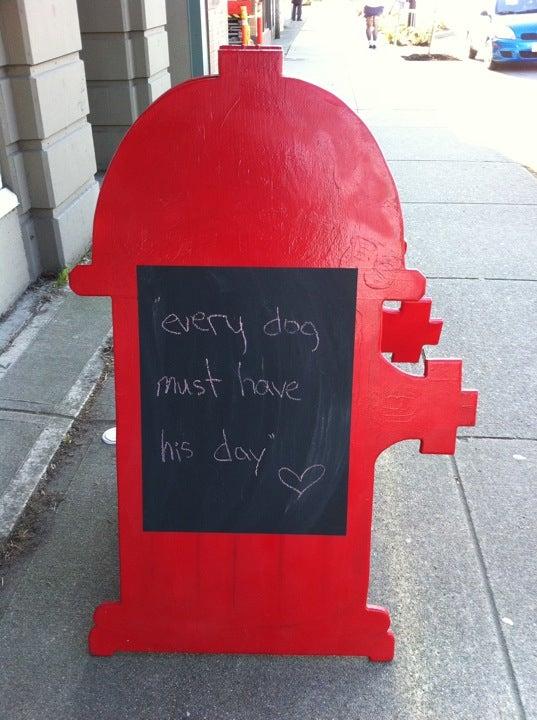 "every dog
must have
his day"